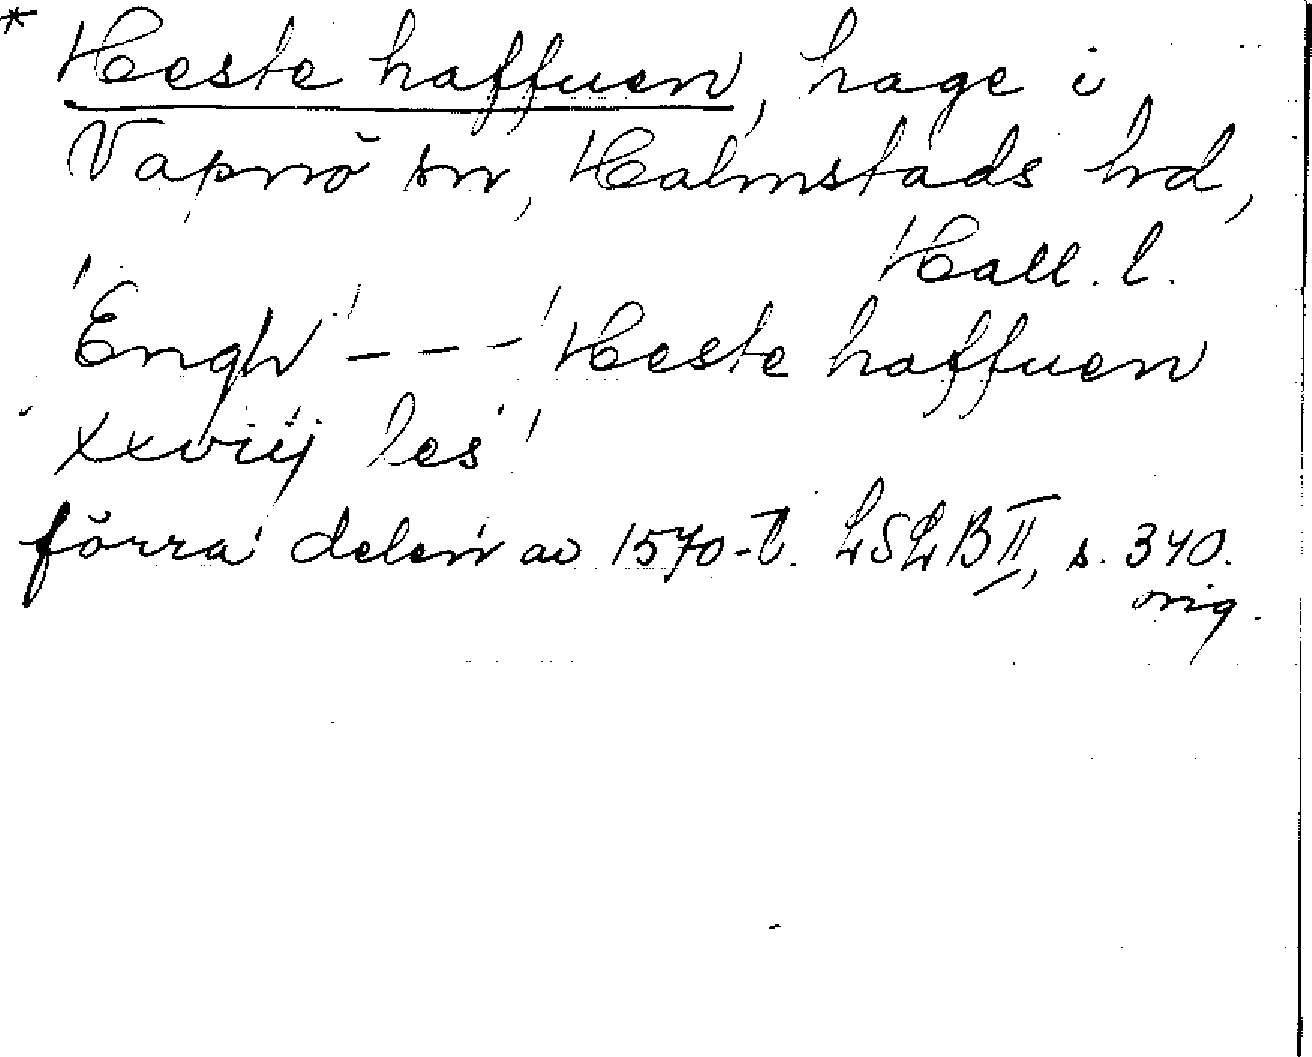 * Heste haffuen, hage i
Vapnö sn, Halmstads hrd,
Hall. l.
'Engh' - - - 'Heste haffuen
xxviij les'
förra delen av 1570-t. LSLB II, s. 340.
orig.